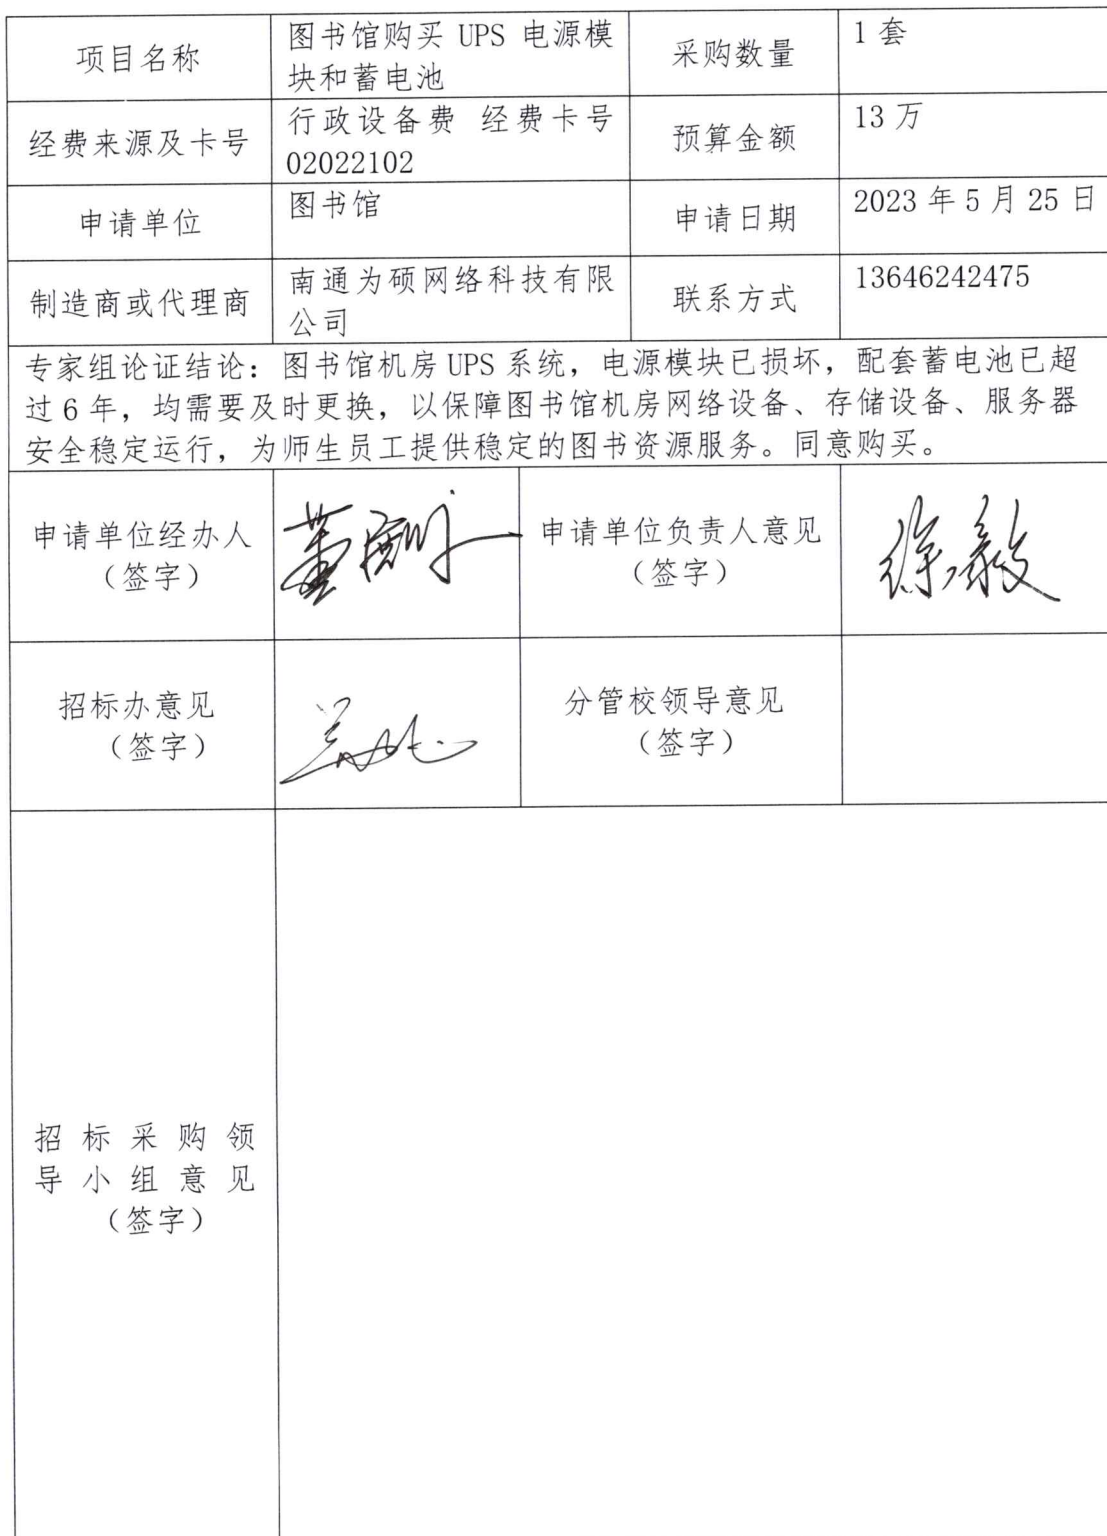 项目名称
图书馆购买 UPS 电源模
块和蓄电池
采购数量
1 套
经费来源及卡号
行政设备费 经费卡号
02022102
预算金额
13 万
申请单位
图书馆
申请日期
2023 年 5 月 25 日
制造商或代理商
南通为硕网络科技有限
公司
联系方式
13646242475
专家组论证结论：图书馆机房 UPS 系统，电源模块已损坏，配套蓄电池已超
过 6 年，均需要及时更换，以保障图书馆机房网络设备、存储设备、服务器
安全稳定运行，为师生员工提供稳定的图书资源服务。同意购买。
申请单位经办人
（签字）
申请单位负责人意见
（签字）
徐毅
招标办意见
（签字）
分管校领导意见
（签字）
招标采购领
导小组意见
（签字）